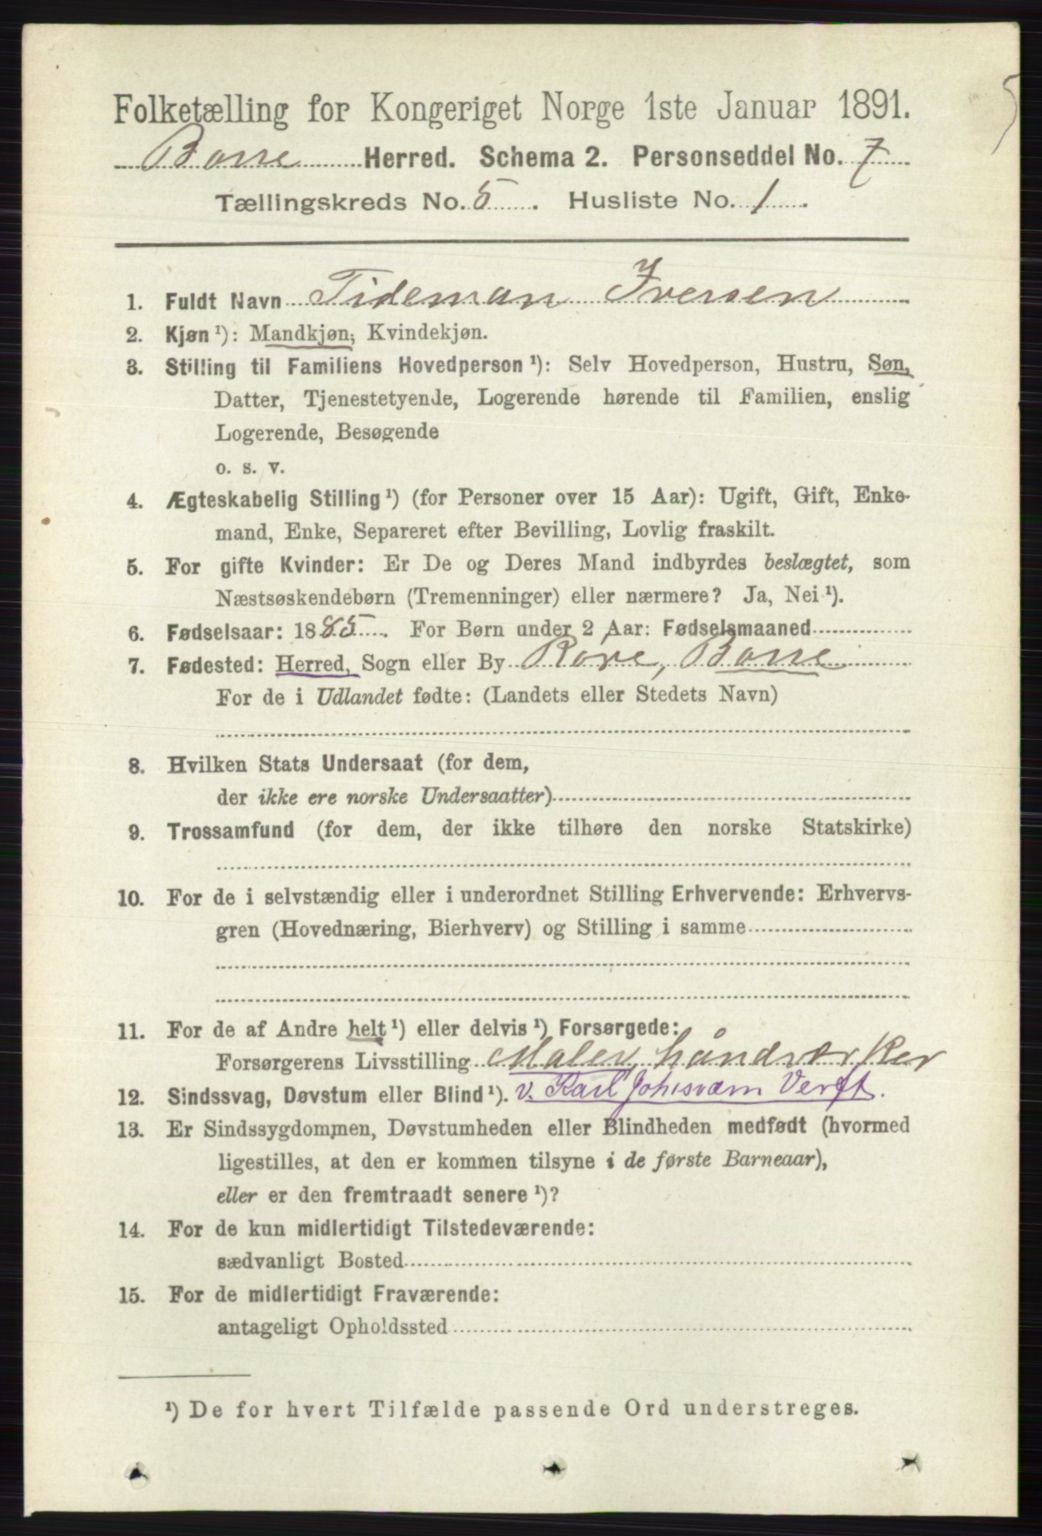 5
Folketælling for Kongeriget Norge 1ste Januar 1891.
Borre Herred. Schema 2. Personseddel No. 7
Tællingskreds No. 5. Husliste No. 1.
1. Fuldt Navn Tideman Iversen
2. Kjøn ¹): Mandkjøn, Kvindekjøn.
3. Stilling til Familiens Hovedperson ¹): Selv Hovedperson, Hustru, Søn,
Datter, Tjenestetyende, Logerende hørende til Familien, enslig
Logerende, Besøgende
o. s. v.
4. Ægteskabelig Stilling ¹) (for Personer over 15 Aar): Ugift, Gift, Enke-
mand, Enke, Separeret efter Bevilling, Lovlig fraskilt.
5. For gifte Kvinder: Er De og Deres Mand indbyrdes beslægtet, som
Næstsøskendebørn (Tremenninger) eller nærmere? Ja, Nei ¹).
6. Fødselsaar: 1885. For Børn under 2 Aar: Fødselsmaaned
7. Fødested: Herred, Sogn eller By Røre, Borre
For de i Udlandet fødte: (Landets eller Stedets Navn)
8. Hvilken Stats Undersaat (for dem,
der ikke ere norske Undersaatter)
9. Trossamfund (for dem, der ikke tilhøre den norske Statskirke)
10. For de i selvstændig eller i underordnet Stilling Erhvervende: Erhvervs-
gren (Hovednæring, Bierhverv) og Stilling i samme
11. For de af Andre helt ¹) eller delvis ¹) Forsørgede:
Forsørgerens Livsstilling Maler, håndværker
12. Sindssvag, Døvstum eller Blind ¹). v. Karl Johnsværn Verft.
13. Er Sindssygdommen, Døvstumheden eller Blindheden medfødt (hvormed
ligestilles, at den er kommen tilsyne i de første Barneaar),
eller er den fremtraadt senere ¹)?
14. For de kun midlertidigt Tilstedeværende:
sædvanligt Bosted
15. For de midlertidigt Fraværende:
antageligt Opholdssted
¹) De for hvert Tilfælde passende Ord understreges.